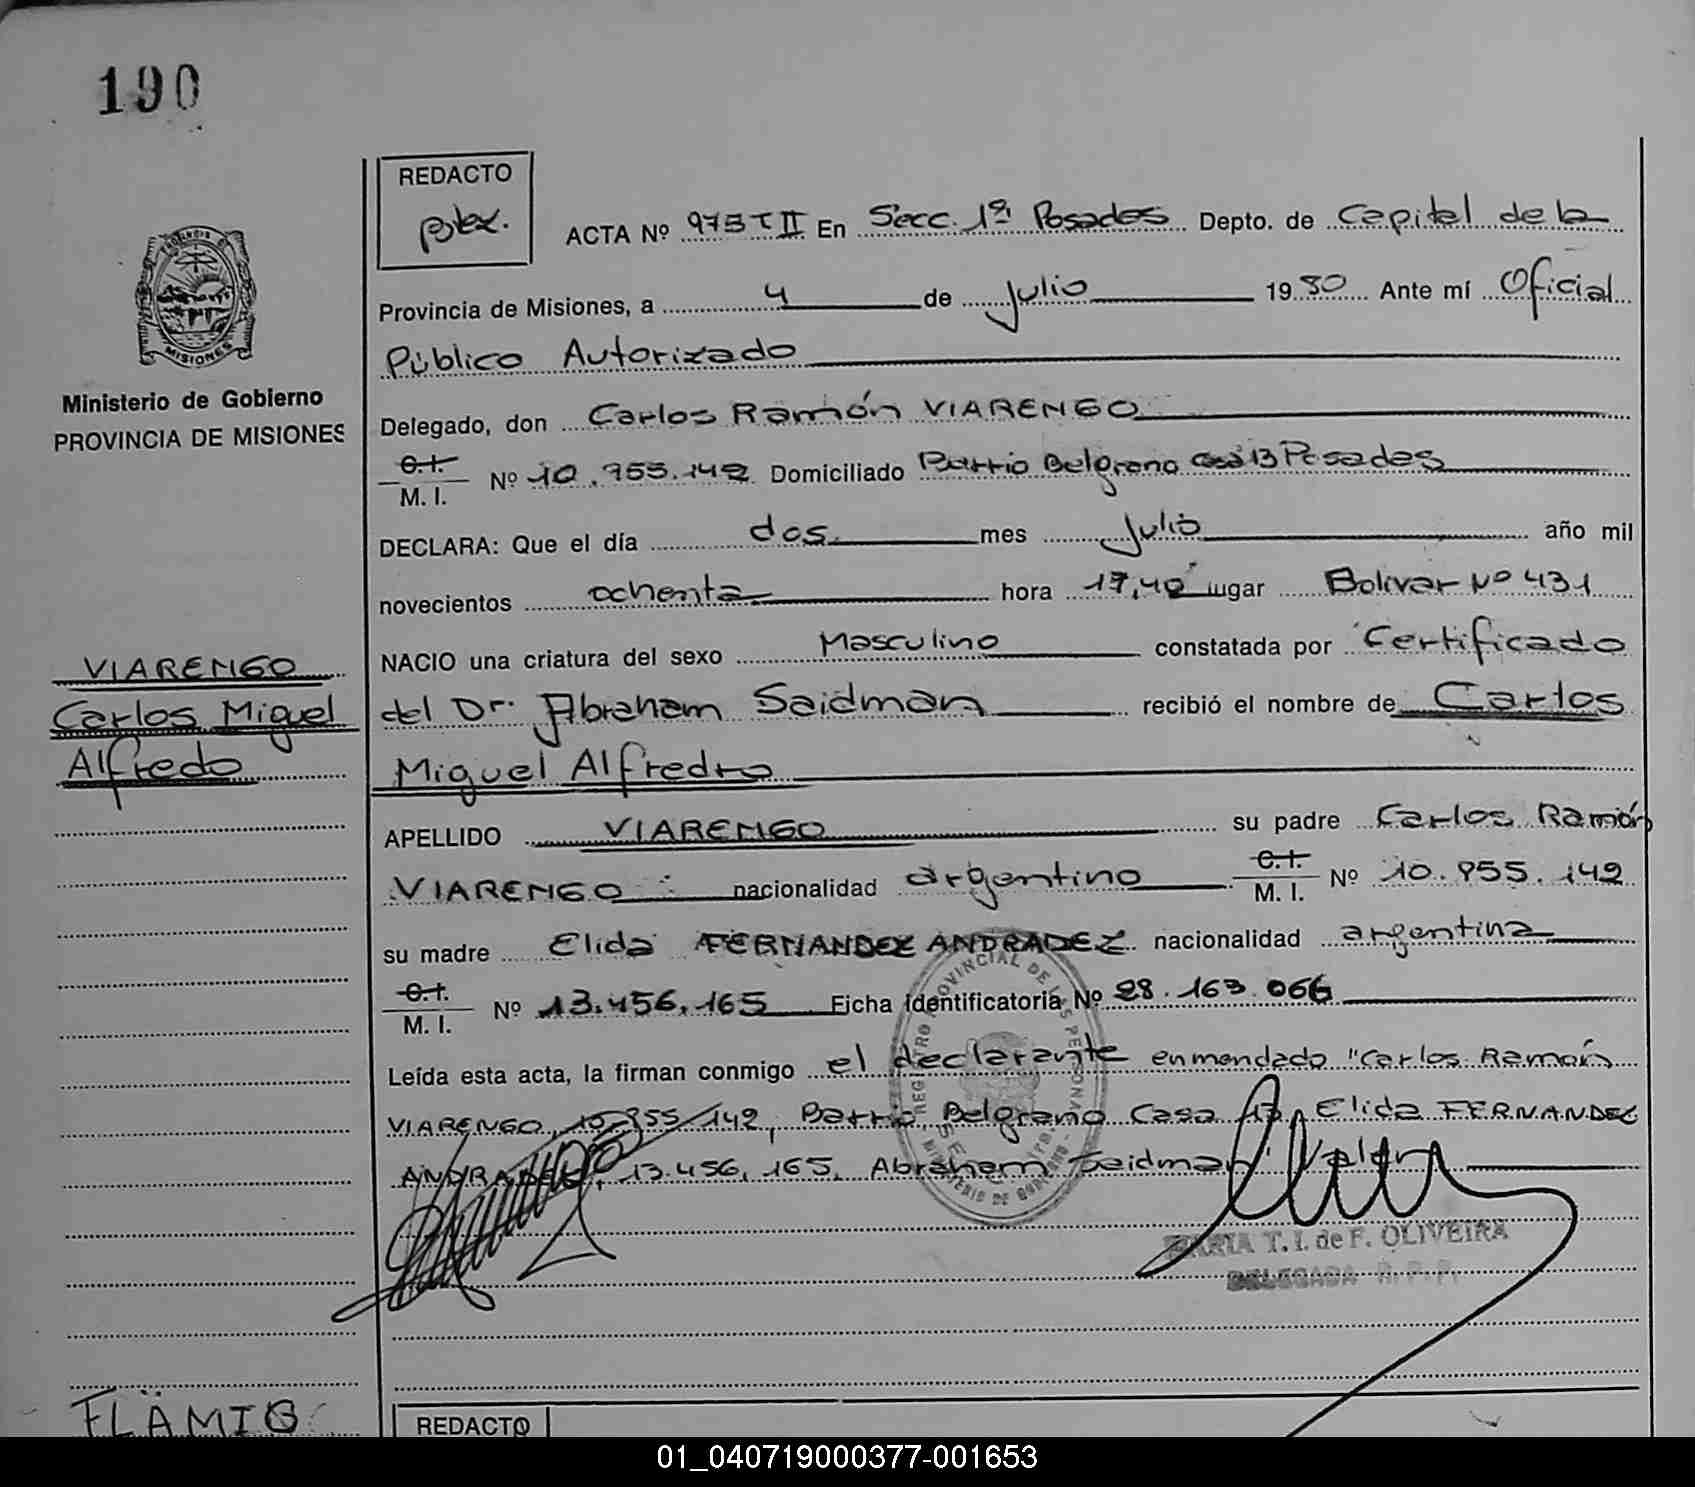 190
REDACTO
ACTA Nº 975 T II En Secc. 1ª Posadas Depto. de Capital de la
Provincia de Misiones, a 4 de Julio 1980 Ante mí Oficial
Público Autorizado
MISIONES
Ministerio de Gobierno
PROVINCIA DE MISIONES
Delegado, don Carlos Ramón VIARENGO
C.I.
M. I. Nº 10.955.142 Domiciliado Barrio Belgrano Casa 13 Posadas
DECLARA: Que el día dos mes Julio año mil
novecientos ochenta hora 17,40 lugar Bolivar Nº 431
NACIO una criatura del sexo Masculino constatada por Certificado
VIARENGO
Carlos Miguel
Alfredo
del Dr. Abraham Saidman recibió el nombre de Carlos
Miguel Alfredo
APELLIDO VIARENGO su padre Carlos Ramón
VIARENGO nacionalidad argentino C.I. M. I. Nº 10.955.142
su madre Elida FERNANDEZ ANDRADEZ nacionalidad argentina
C.I.
M. I. Nº 13.456.165 Ficha Identificatoria Nº 28.163.066
Leída esta acta, la firman conmigo el declarante enmendado "Carlos Ramón
VIARENGO, 10.955.142, Barrio Belgrano Casa 13, Elida FERNANDEZ
ANDRADEZ, 13.456.165, Abraham Saidman" Valen
REGISTRO PROVINCIAL DE LAS PERSONAS
MINISTERIO DE GOBIERNO
MARIA T. I. de F. OLIVEIRA
DELEGADA R. P. P.
FLÄMIG
REDACTO
01_040719000377-001653